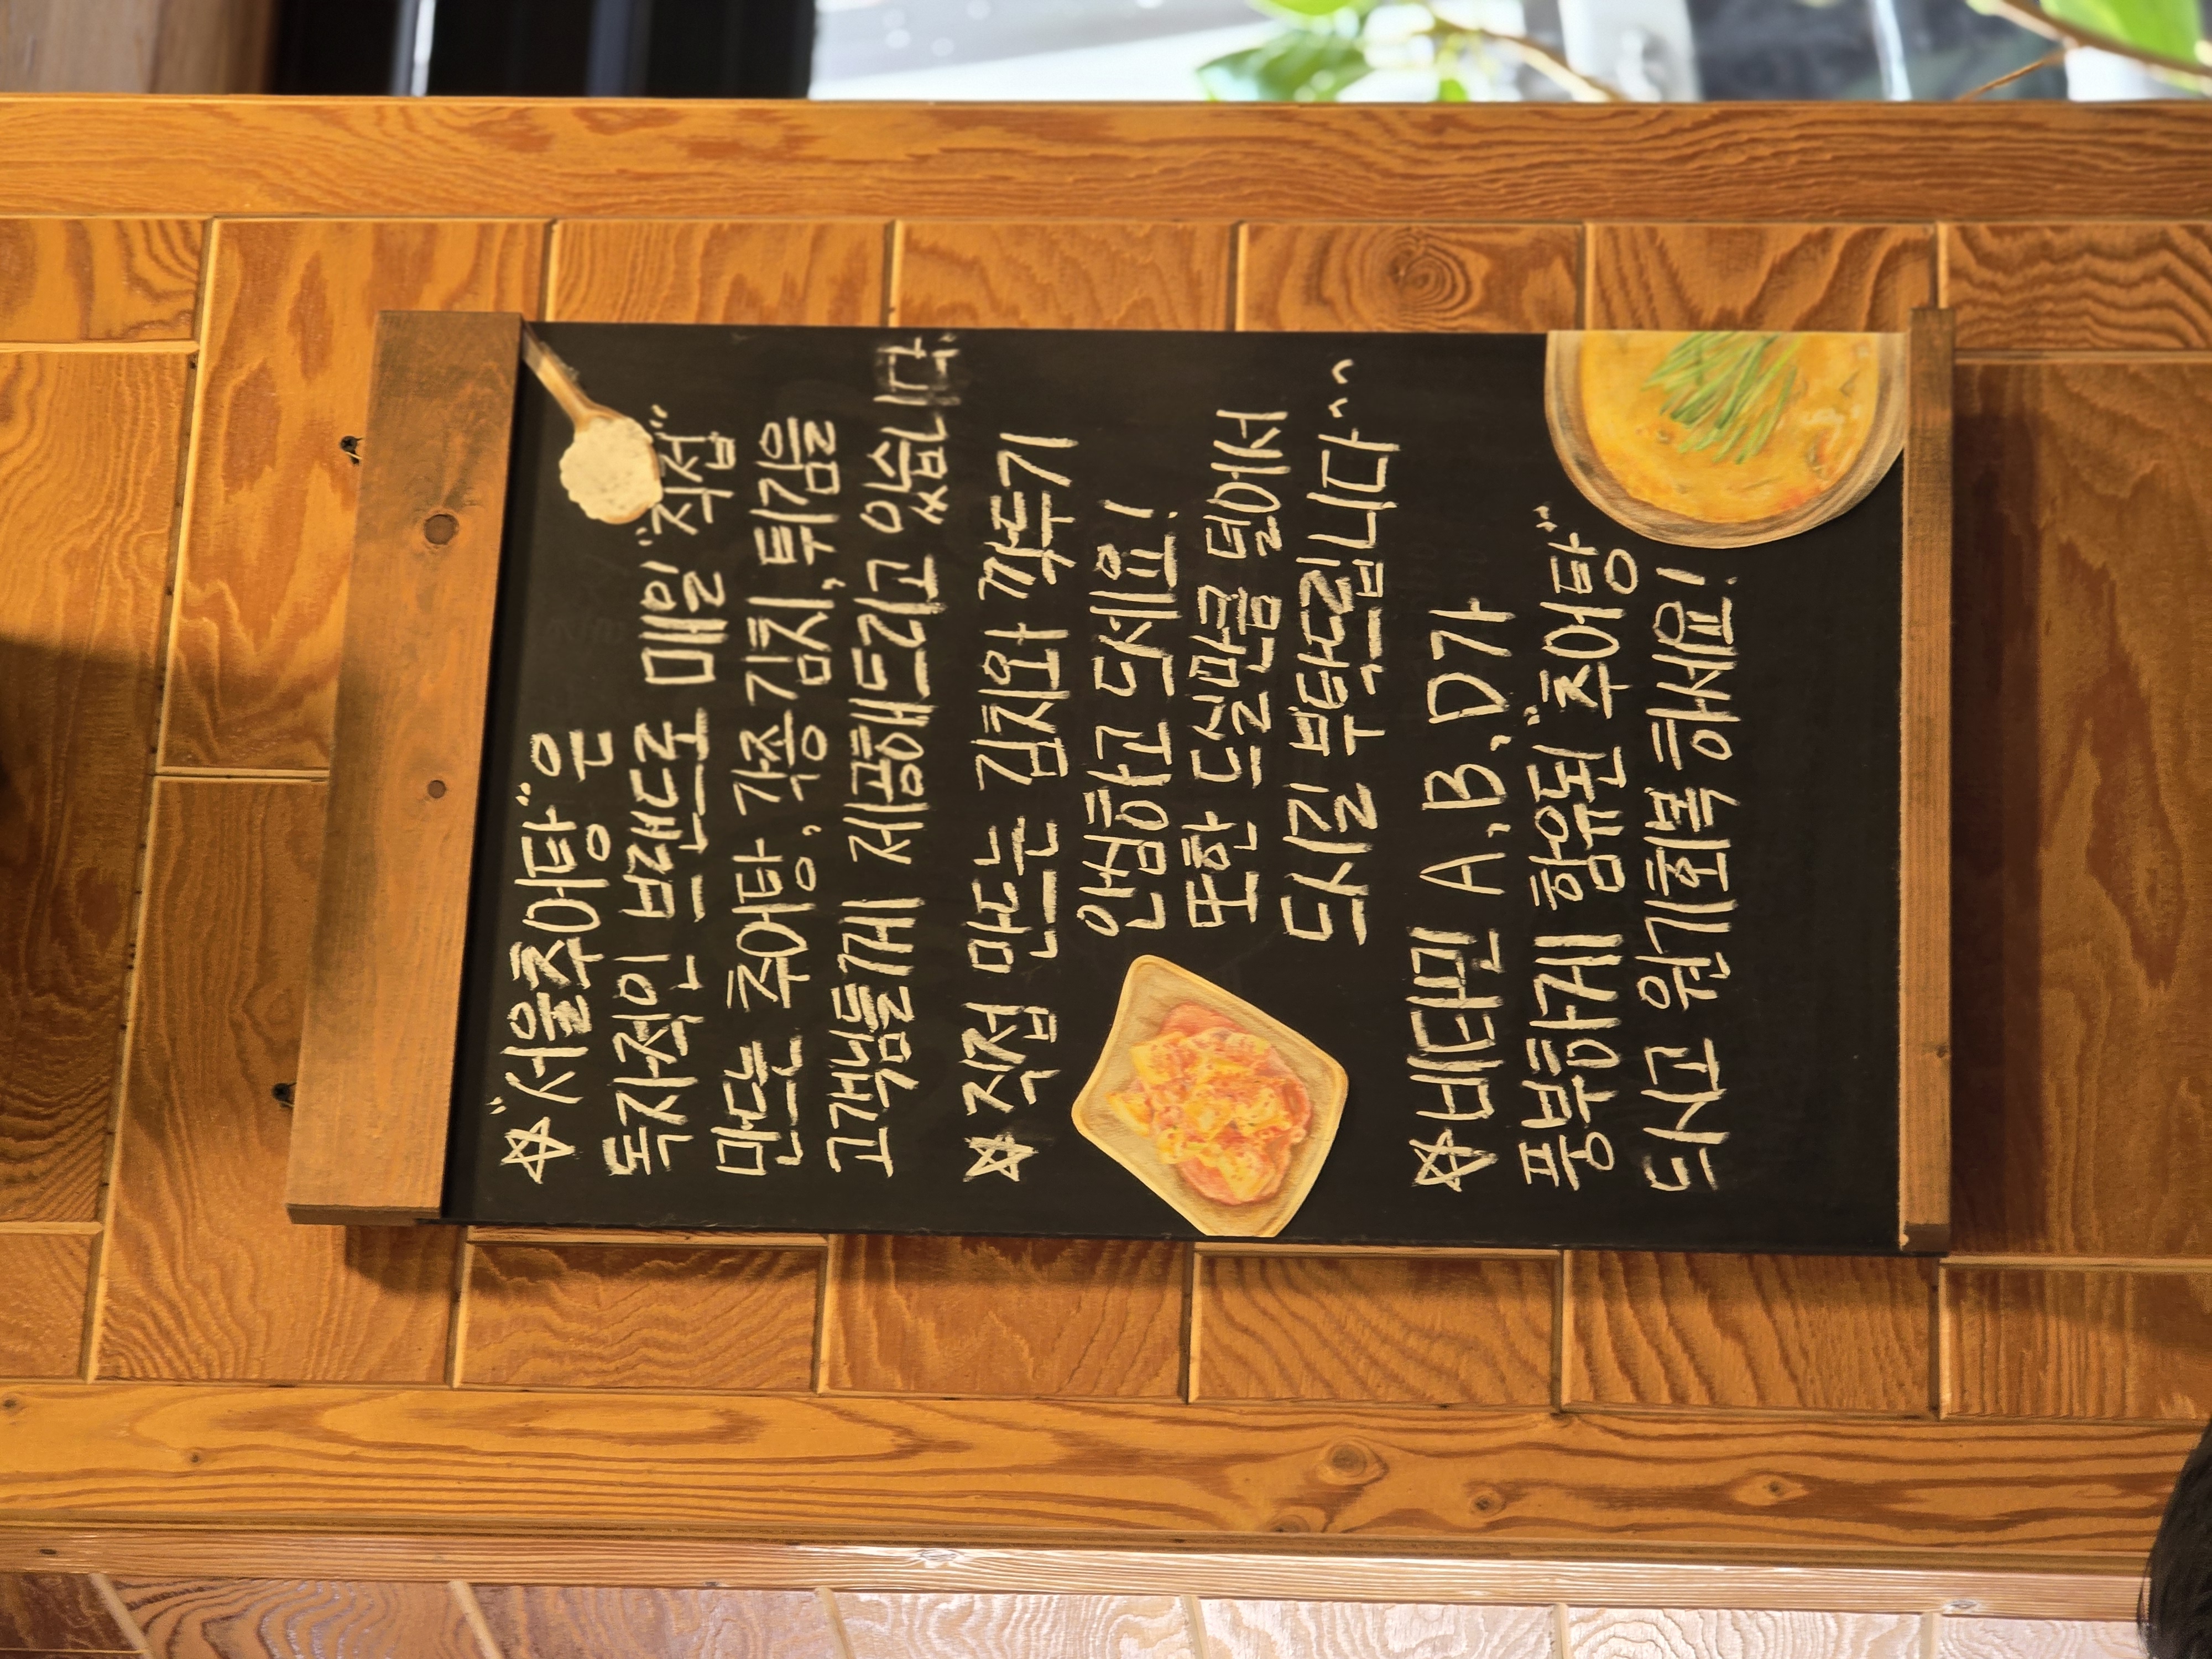 ☆"서울추어탕"은
독자적인 브랜드로 매일"직접"
만드는 추어탕, 각종김치,튀김을
고객님들께 제공해드리고 있습니다.
☆직접 만드는 김치와 깍두기
안심하고 드세요!
또한 드실만큼 덜어서
드시길 부탁드립니다^^
☆비타민 A,B,D가
풍부하게 함유된"추어탕"
드시고 원기회복 하세요!